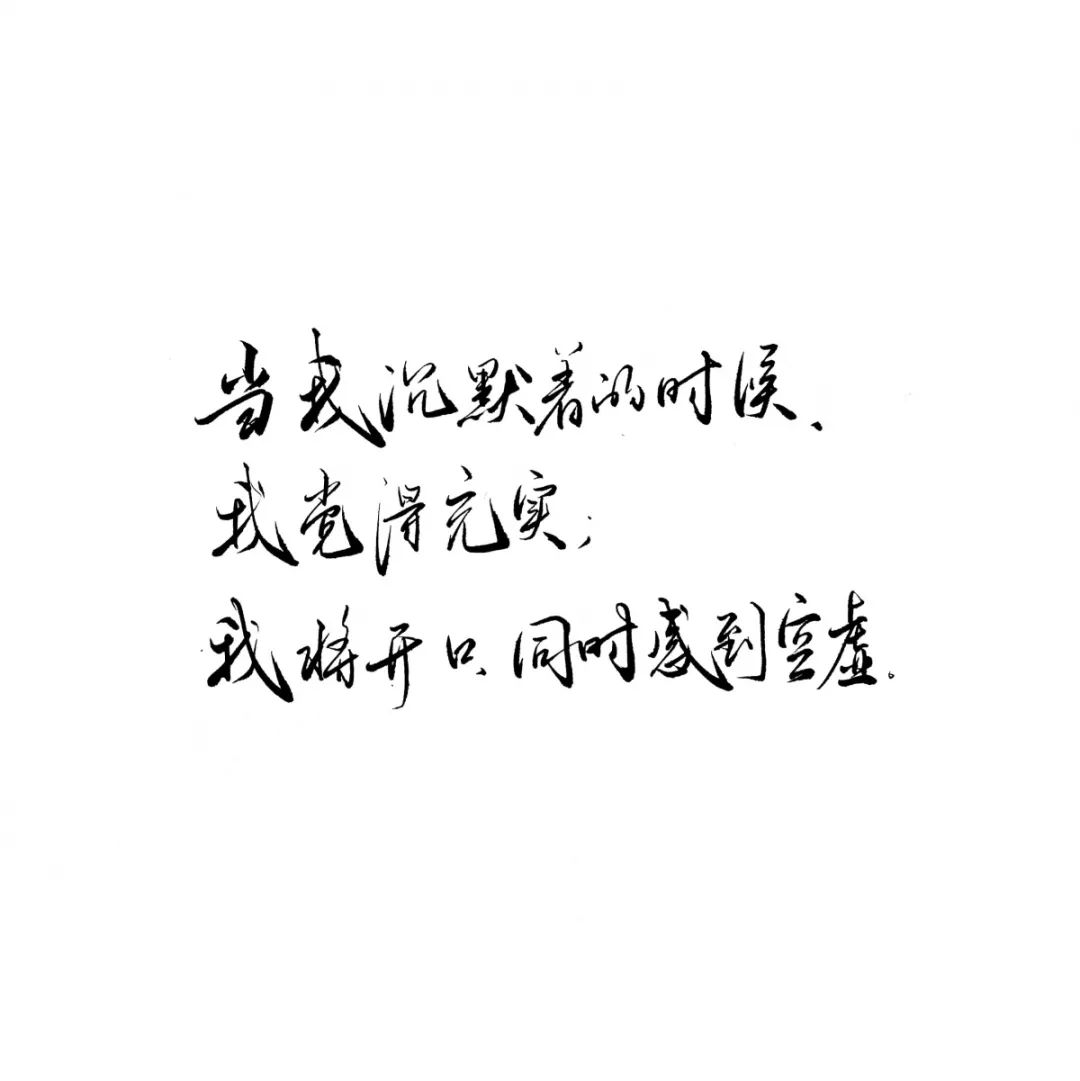 当我沉默着的时候、
我觉得充实；
我将开口、同时感到空虚。